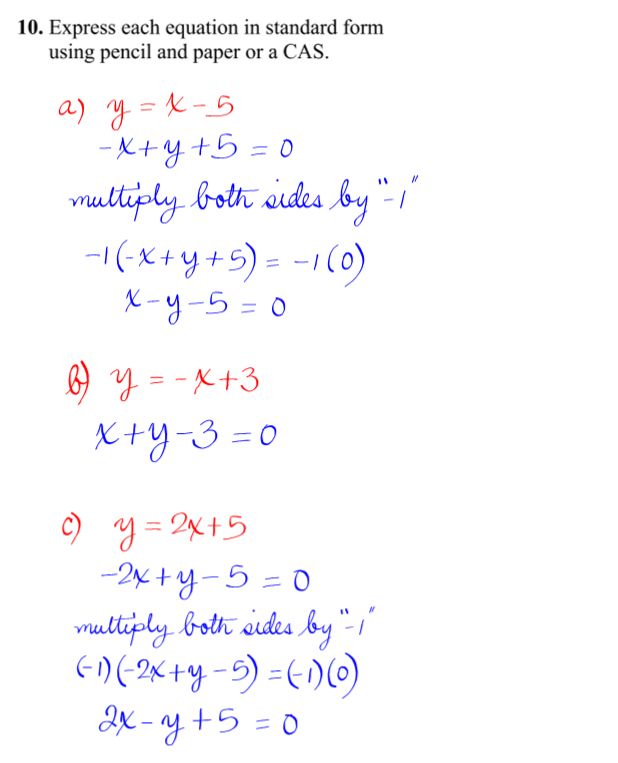 10. Express each equation in standard form
using pencil and paper or a CAS.
a) y = x - 5
-x + y + 5 = 0
multiply both sides by "-1"
-1(-x + y + 5) = -1(0)
x - y - 5 = 0
b) y = -x + 3
x + y - 3 = 0
c) y = 2x + 5
-2x + y - 5 = 0
multiply both sides by "-1"
(-1)(-2x + y - 5) = (-1)(0)
2x - y + 5 = 0